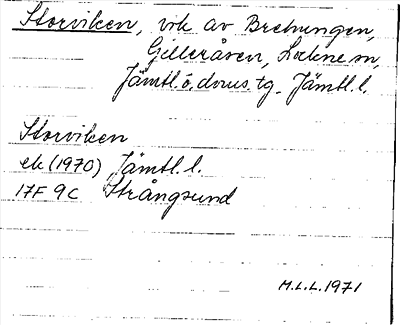 Storviken, vik av Brehungen,
Gilleråsen, Lockne sn,
Jämtl. ö. doms. tg. Jämtl. l.
Storviken
ek (1970) Jämtl. l.
17F 9c Strångsund
M.L.L. 1971